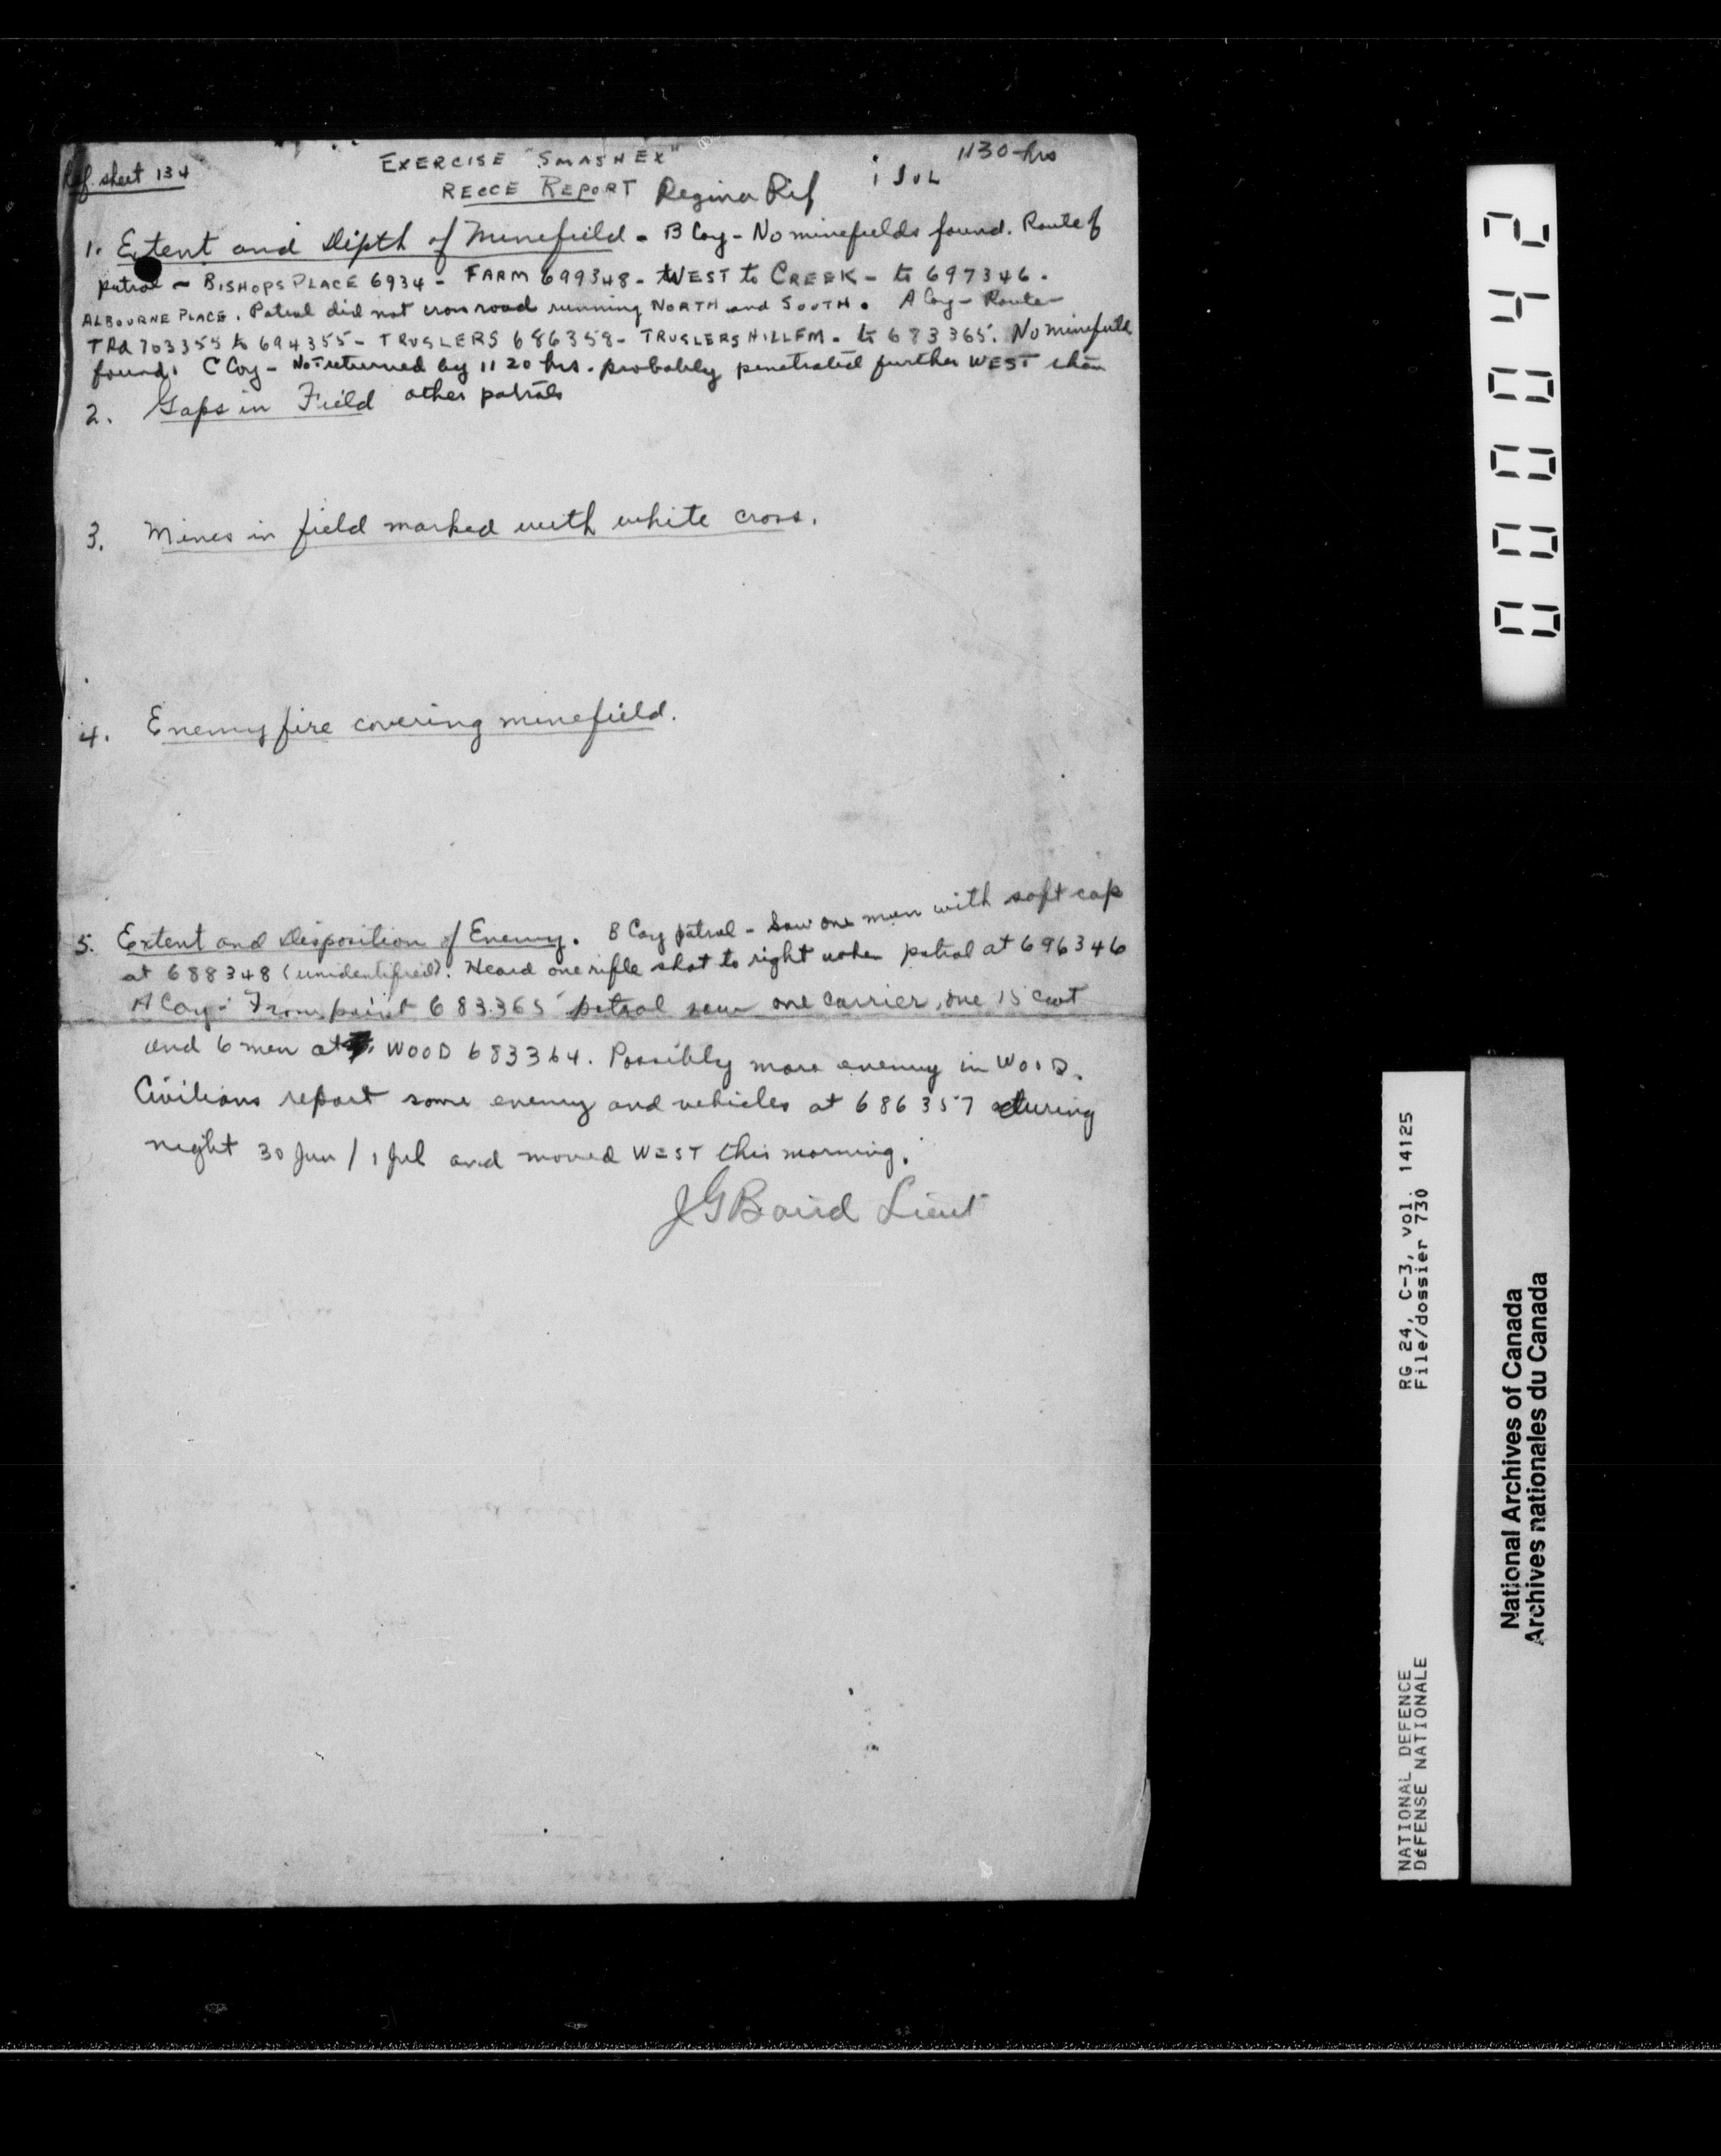 Ref. sheet 134
EXERCISE "SMASHEX"
1130 hrs
1 JUL
RECCE REPORT Regina Rif
1. Extent and Depth of Minefield - B Coy - No minefields found. Route of
patrol - BISHOPS PLACE 6934 - FARM 699348 - WEST to CREEK - to 697346 -
ALBOURNE PLACE. Patrol did not cross road running NORTH and SOUTH. A Coy - Route -
703355 to 694355 - TRUSLERS 686358 - TRUSLERS HILL FM. - to 683365. No minefield
found. C Coy - Not returned by 1120 hrs. probably penetrated further WEST than
other patrols
2. Gaps in Field
3. Mines in field marked with white cross.
4. Enemy fire covering minefield.
5. Extent and Disposition of Enemy. B Coy patrol - Saw one man with soft cap
at 688348 (unidentified). Heard one rifle shot to right when patrol at 696346
A Coy - From point 683365 patrol saw one carrier, one 15 cwt
and 6 men at WOOD 683364. Possibly more enemy in WOOD.
Civilians report some enemy and vehicles at 686357 during
night 30 Jun / 1 Jul and moved WEST this morning.
JG Baird Lieut
000042
RG 24, C-3, vol. 14125
File/dossier 730
NATIONAL DEFENCE
DéFENSE NATIONALE
National Archives of Canada
Archives nationales du Canada